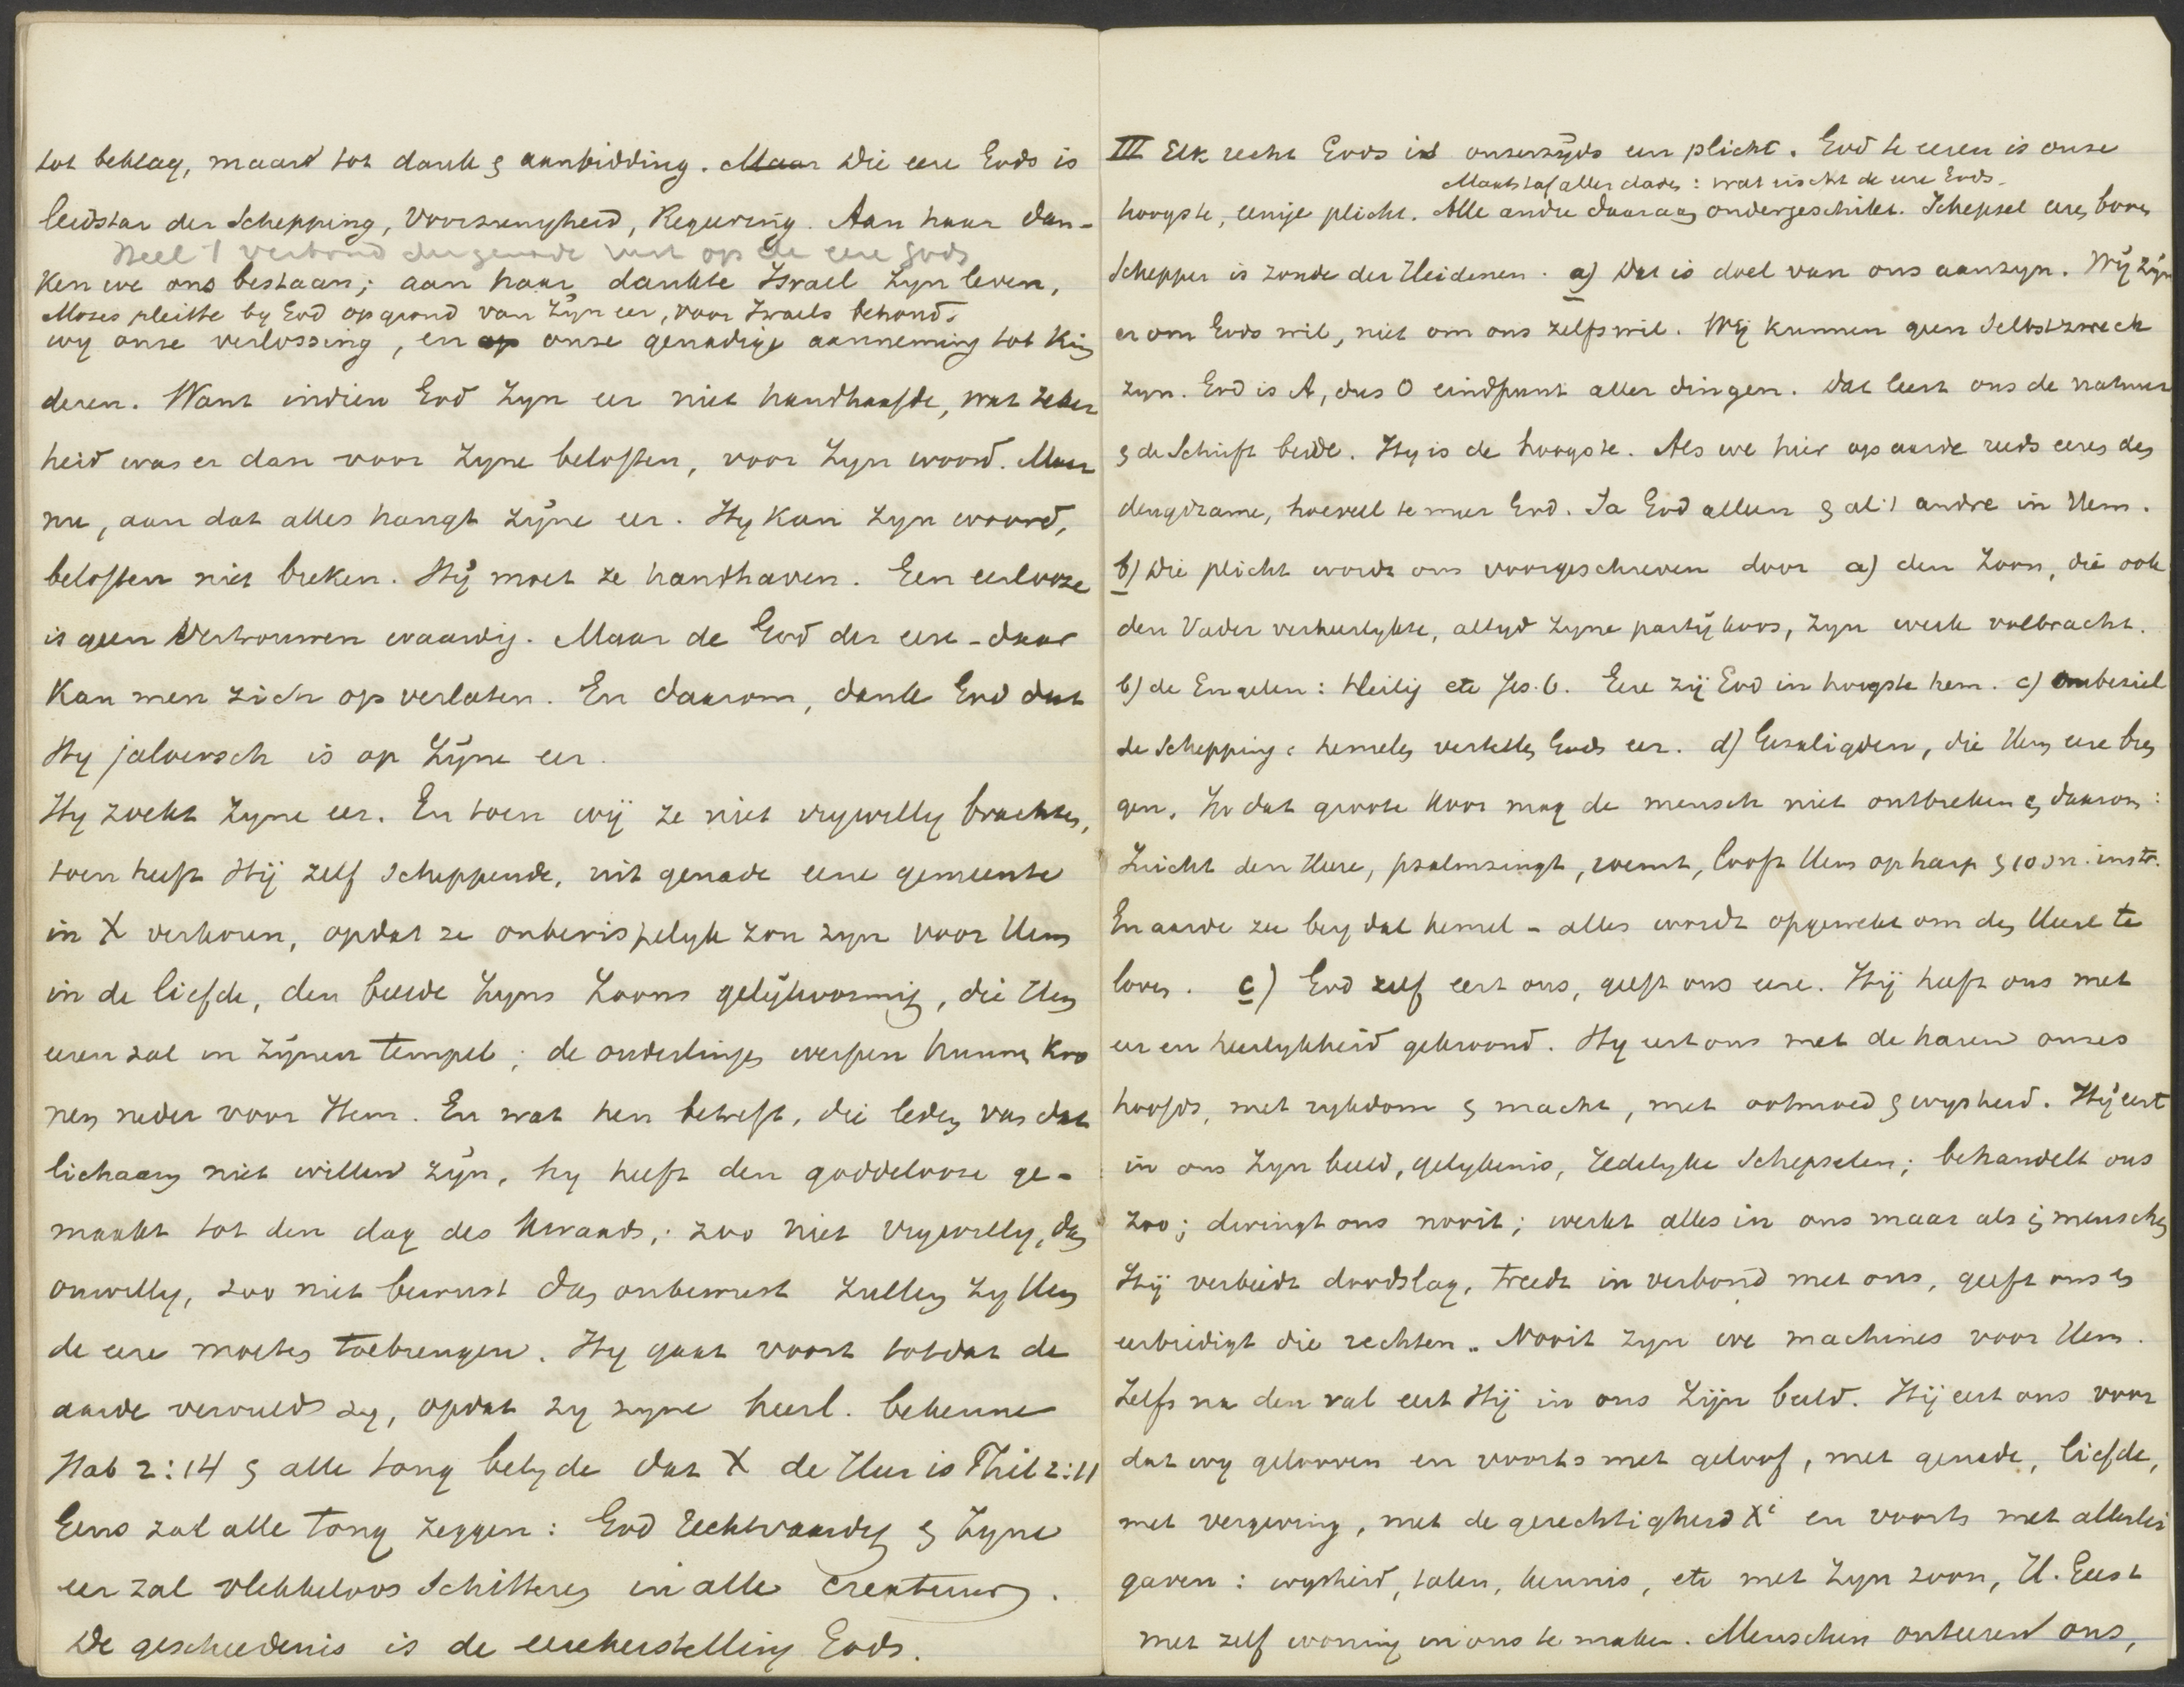 tot beklag, maar tot dank & aanbidding. Maar Die eere Gods is
leidstar der Schepping, Voorzienigheid, Regeering. Aan haar dan-
Heel 't verbond der genade rust op de eere Gods
ken we ons bestaan; aan haar dankte Israel zyn leven,
Mozes pleitte by God op grond van Zyn eer, voor Israels behoud.
wy onze verlossing, en op onze genadige aanneming tot kin
deren. Want indien God Zyn eer niet handhaafde, wat zeker
heid was er dan voor Zyne beloften, voor Zyn woord. Maar
nu, aan dat alles hangt Zÿne eer. Hy kan Zyn woord,
beloften niet breken. Hÿ moet ze handhaven. Een eerlooze
is geen Vertrouwen waardig. Maar de God der eere - daar
kan men zich op verlaten. En daarom, dank God dat
Hy jaloersch is op Zÿne eer.
Hy zoekt Zyne eer. En toen wÿ ze niet vrywillig brachten,
toen heeft Hÿ zelf scheppende, uit genade eene gemeente
in X verkoren, opdat ze onberispelyk zou zyn voor Hem
in de liefde, den beelde Zyns Zoons gelÿkvormig, die Hem
eeren zal in Zÿnen tempel; de ouderlingen werpen hunne kro
nen neder voor Hem. En wat hen betreft, die leden van dat
lichaam niet willen zÿn, hy heeft den goddelooze ge-
maakt tot den dag des kwaads; zoo niet vrywillig, dan
onwillig, zoo niet bewust dan onbewust zullen zy Hem
de eere moeten toebrengen. Hy gaat voort totdat de
aarde vervuld zy, opdat zy zyne heerl. bekenne
Hab 2:14 & alle tong belyde dat X de Heer is Phil 2:11
Eens zal alle tong zeggen: God rechtvaardig & Zyne
eer zal vlekkeloos schitteren in alle creaturen.
De geschiedenis is de eereherstelling Gods.
III Elk recht Gods is onzerzÿds een plicht. God te eeren is onze
Maatstaf aller daden: wat eischt de eere Gods.
hoogste, eenige plicht. Alle andre daaraan ondergeschikt. Schepsel eeren boven
Schepper is zonde der Heidenen. a) Dat is doel van ons aanzyn. Wÿ zÿn
er om Gods wil, niet om ons zelfs wil. Wÿ kunnen geen Selbstzweck
zyn. God is A, dus O eindpunt aller dingen. Dat leert ons de natuur
& de Schrift beide. Hy is de hoogste. Als we hier op aarde reeds eeren den
deugdzame, hoeveel te meer God. Ja God alleen & al 't andre in Hem.
b) Die plicht wordt ons voorgeschreven door a) den Zoon, die ook
den Vader verheerlykte, altyd Zyne partÿ koos, Zyn werk volbracht.
b) de Engelen: Heilig etc Jes. 6. Eere zÿ God in hoogste hem. c) onbeziel
de Schepping: hemelen vertellen Gods eer. d) Gezaligden, die Hem eere bren
gen. In dat groote koor mag de mensch niet ontbreken & daarom:
Zingt den Heere, psalmzingt, roemt, looft Hem op harp & 10 sn. instr.
En aarde zee berg dal hemel - alles wordt opgewekt om den Heere te
loven. c) God zelf eert ons, geeft ons eere. Hÿ heeft ons met
eer en heerlykheid gekroond. Hy eert ons met de haren onzes
hoofds, met rykdom & macht, met ootmoed & wysheid. Hÿ eert
in ons Zyn beeld, gelykenis, zedelyke Schepselen; behandelt ons
zoo; dwingt ons nooit; werkt alles in ons maar als in menschen
Hÿ verbiedt doodslag, treedt in verbond met ons, geeft ons en
eerbiedigt die rechten. Nooit zyn we machines voor Hem.
Zelfs na den val eert Hÿ in ons Zÿn beeld. Hÿ eert ons voor
dat wy gelooven en voorts met geloof, met genade, liefde,
met vergeving, met de gerechtigheid Xi en voorts met allerlei
gaven: wysheid, talen, kennis, etc met Zyn zoon, H. Geest
met zelf woning in ons te maken. Menschen onteeren ons,